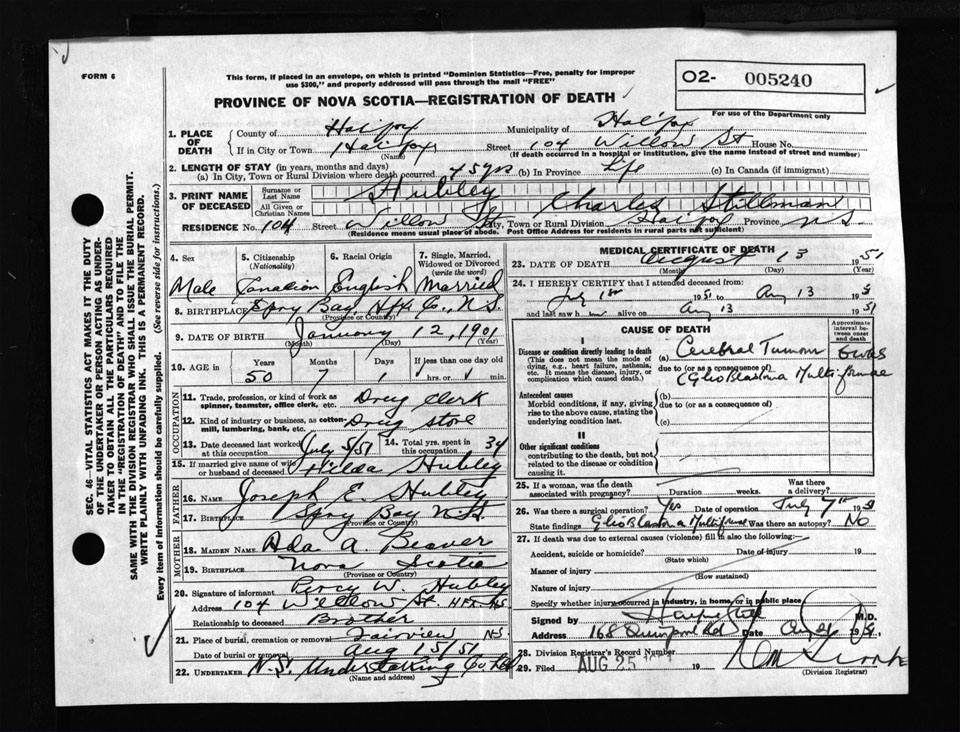 FORM 6
This form, if placed in an envelope, on which is printed "Dominion Statistics—Free, penalty for improper
use $300," and properly addressed will pass through the mail "FREE"
O2- 005240
PROVINCE OF NOVA SCOTIA—REGISTRATION OF DEATH
For use of the Department only
1. PLACE OF DEATH
County of Halifax Municipality of Halifax
If in City or Town Halifax Street 104 Willow St House No.
(Name) (If death occurred in a hospital or institution, give the name instead of street and number)
2. LENGTH OF STAY (in years, months and days)
(a) In City, Town or Rural Division where death occurred 45 yrs (b) In Province Life (c) In Canada (if immigrant)
3. PRINT NAME OF DECEASED
Surname or Last Name Hubley
All Given or Christian Names Charles Stillman
RESIDENCE No. 104 Street Willow St City, Town or Rural Division Halifax Province N S
(Residence means usual place of abode. Post Office Address for residents in rural parts not sufficient)
4. Sex 5. Citizenship (Nationality) 6. Racial Origin 7. Single, Married, Widowed or Divorced (write the word)
Male Canadian English Married
8. BIRTHPLACE Spry Bay Hfx Co., N.S.
(Province or Country)
9. DATE OF BIRTH January 12, 1901
(Month) (Day) (Year)
10. AGE in Years Months Days If less than one day old
50 7 1 hrs. or min.
OCCUPATION
11. Trade, profession, or kind of work as spinner, teamster, office clerk, etc. Drug Clerk
12. Kind of industry or business, as cotton-mill, lumbering, bank, etc. Drug Store
13. Date deceased last worked at this occupation July 5/51 14. Total yrs. spent in this occupation 34
15. If married give name of wife or husband of deceased Hilda Hubley
FATHER
16. Name Joseph E. Hubley
17. Birthplace Spry Bay N.S.
(Province or Country)
MOTHER
18. MAIDEN NAME Ada A. Beaver
19. BIRTHPLACE Nova Scotia
(Province or Country)
20. Signature of informant Percy W. Hubley
Address 104 Willow St. Hfx NS
Relationship to deceased Brother
21. Place of burial, cremation or removal Fairview NS
Date of burial or removal Aug 15/51
22. UNDERTAKER N.S. Undertaking Co Ltd
(Name and address)
MEDICAL CERTIFICATE OF DEATH
23. DATE OF DEATH August 13 1951
(Month) (Day) (Year)
24. I HEREBY CERTIFY that I attended deceased from:
July 1st 1951 to Aug 13 1951
and last saw him alive on Aug 13 1951
CAUSE OF DEATH
Approximate interval between onset and death
I
Disease or condition directly leading to death
(This does not mean the mode of dying, e.g., heart failure, asthenia, etc. It means the disease, injury, or complication which caused death.)
(a) Cerebral Tumour 6 wks
due to (or as a consequence of)
(Glioblastoma Multiformae
Antecedent causes
Morbid conditions, if any, giving rise to the above cause, stating the underlying condition last.
(b)
due to (or as a consequence of)
(c)
II
Other significant conditions
contributing to the death, but not related to the disease or condition causing it.
25. If a woman, was the death associated with pregnancy? Duration weeks. Was there a delivery?
26. Was there a surgical operation? Yes Date of operation July 7th 1951
State findings Glioblastoma Multiformae Was there an autopsy? No
27. If death was due to external causes (violence) fill in also the following:
Accident, suicide or homicide? Date of injury 19
(State which)
Manner of injury
(How sustained)
Nature of injury
Specify whether injury occurred in industry, in home, or in public place
Signed by M.D.
Address 168 Quinpool Rd Date Aug 19
28. Division Registrar's Record Number
29. Filed AUG 25 1951 19
(Division Registrar)
SEC. 46—VITAL STATISTICS ACT MAKES IT THE DUTY
OF THE UNDERTAKER OR PERSON ACTING AS UNDER-
TAKER TO OBTAIN ALL THE PARTICULARS REQUIRED
IN THE "REGISTRATION OF DEATH" AND TO FILE THE
SAME WITH THE DIVISION REGISTRAR WHO SHALL ISSUE THE BURIAL PERMIT.
WRITE PLAINLY WITH UNFADING INK. THIS IS A PERMANENT RECORD.
Every item of information should be carefully supplied. (See reverse side for instructions.)